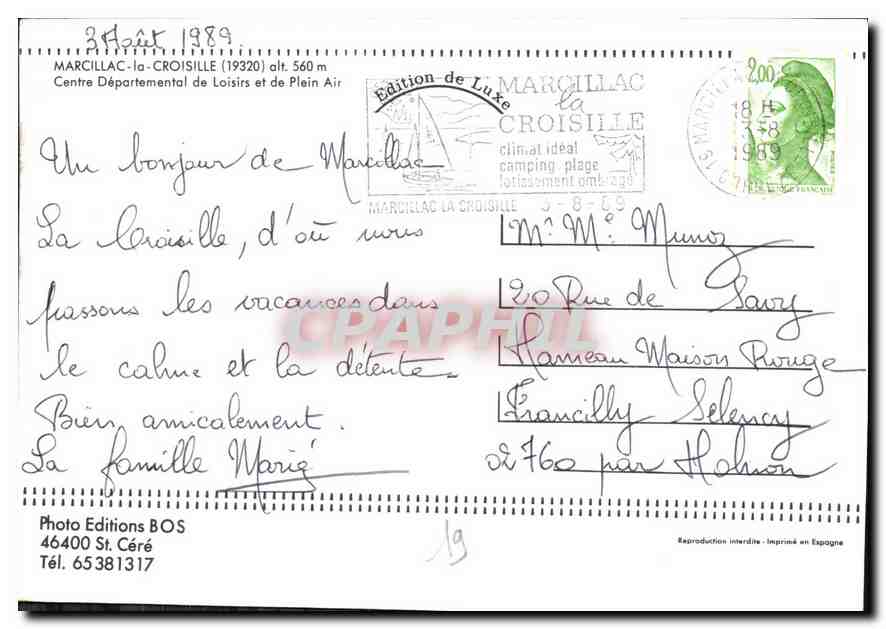 3 Août 1989.
MARCILLAC-la-CROISILLE (19320) alt. 560 m
Centre Départemental de Loisirs et de Plein Air
Edition de Luxe
MARCILLAC
la
CROISILLE
climat idéal
camping plage
lotissement ombragé
MARCILLAC LA CROISILLE 3-8-89
18 H
3-8
1989
2,00
Un bonjour de Marcillac
La Croisille, d'où nous
passons les vacances dans
le calme et la détente.
Bien amicalement.
La famille Marié
Mr Me Munoz
20 Rue de Savy
Hameau Maison Rouge
Francilly Selency
02760 par Holnon
CPAPHIL
Photo Editions BOS
46400 St. Céré
Tél. 65381317
19
Reproduction interdite - Imprimé en Espagne